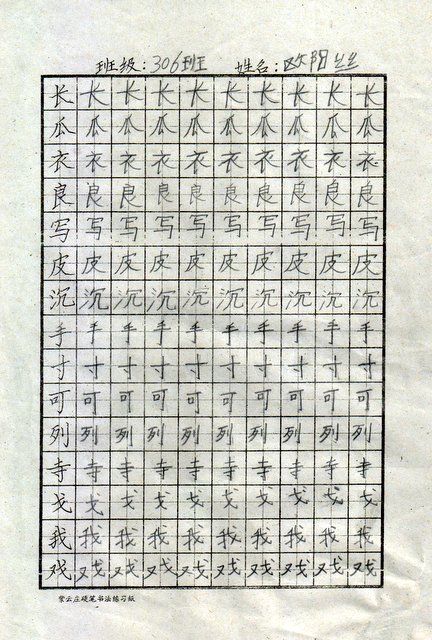 班级：306班 姓名：欧阳丝
长长长长长长长长长长
瓜瓜瓜瓜瓜瓜瓜瓜瓜瓜
衣衣衣衣衣衣衣衣衣衣
良良良良良良良良良良
写写写写写写写写写写
皮皮皮皮皮皮皮皮皮皮
沉沉沉沉沉沉沉沉沉沉
手手手手手手手手手手
寸寸寸寸寸寸寸寸寸寸
可可可可可可可可可可
列列列列列列列列列列
寺寺寺寺寺寺寺寺寺寺
戈戈戈戈戈戈戈戈戈戈
我我我我我我我我我我
戏戏戏戏戏戏戏戏戏戏
云庄硬笔书法练习纸